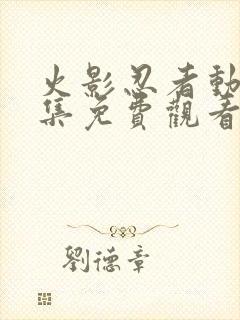 火影忍者動
集免費觀看
劉德章